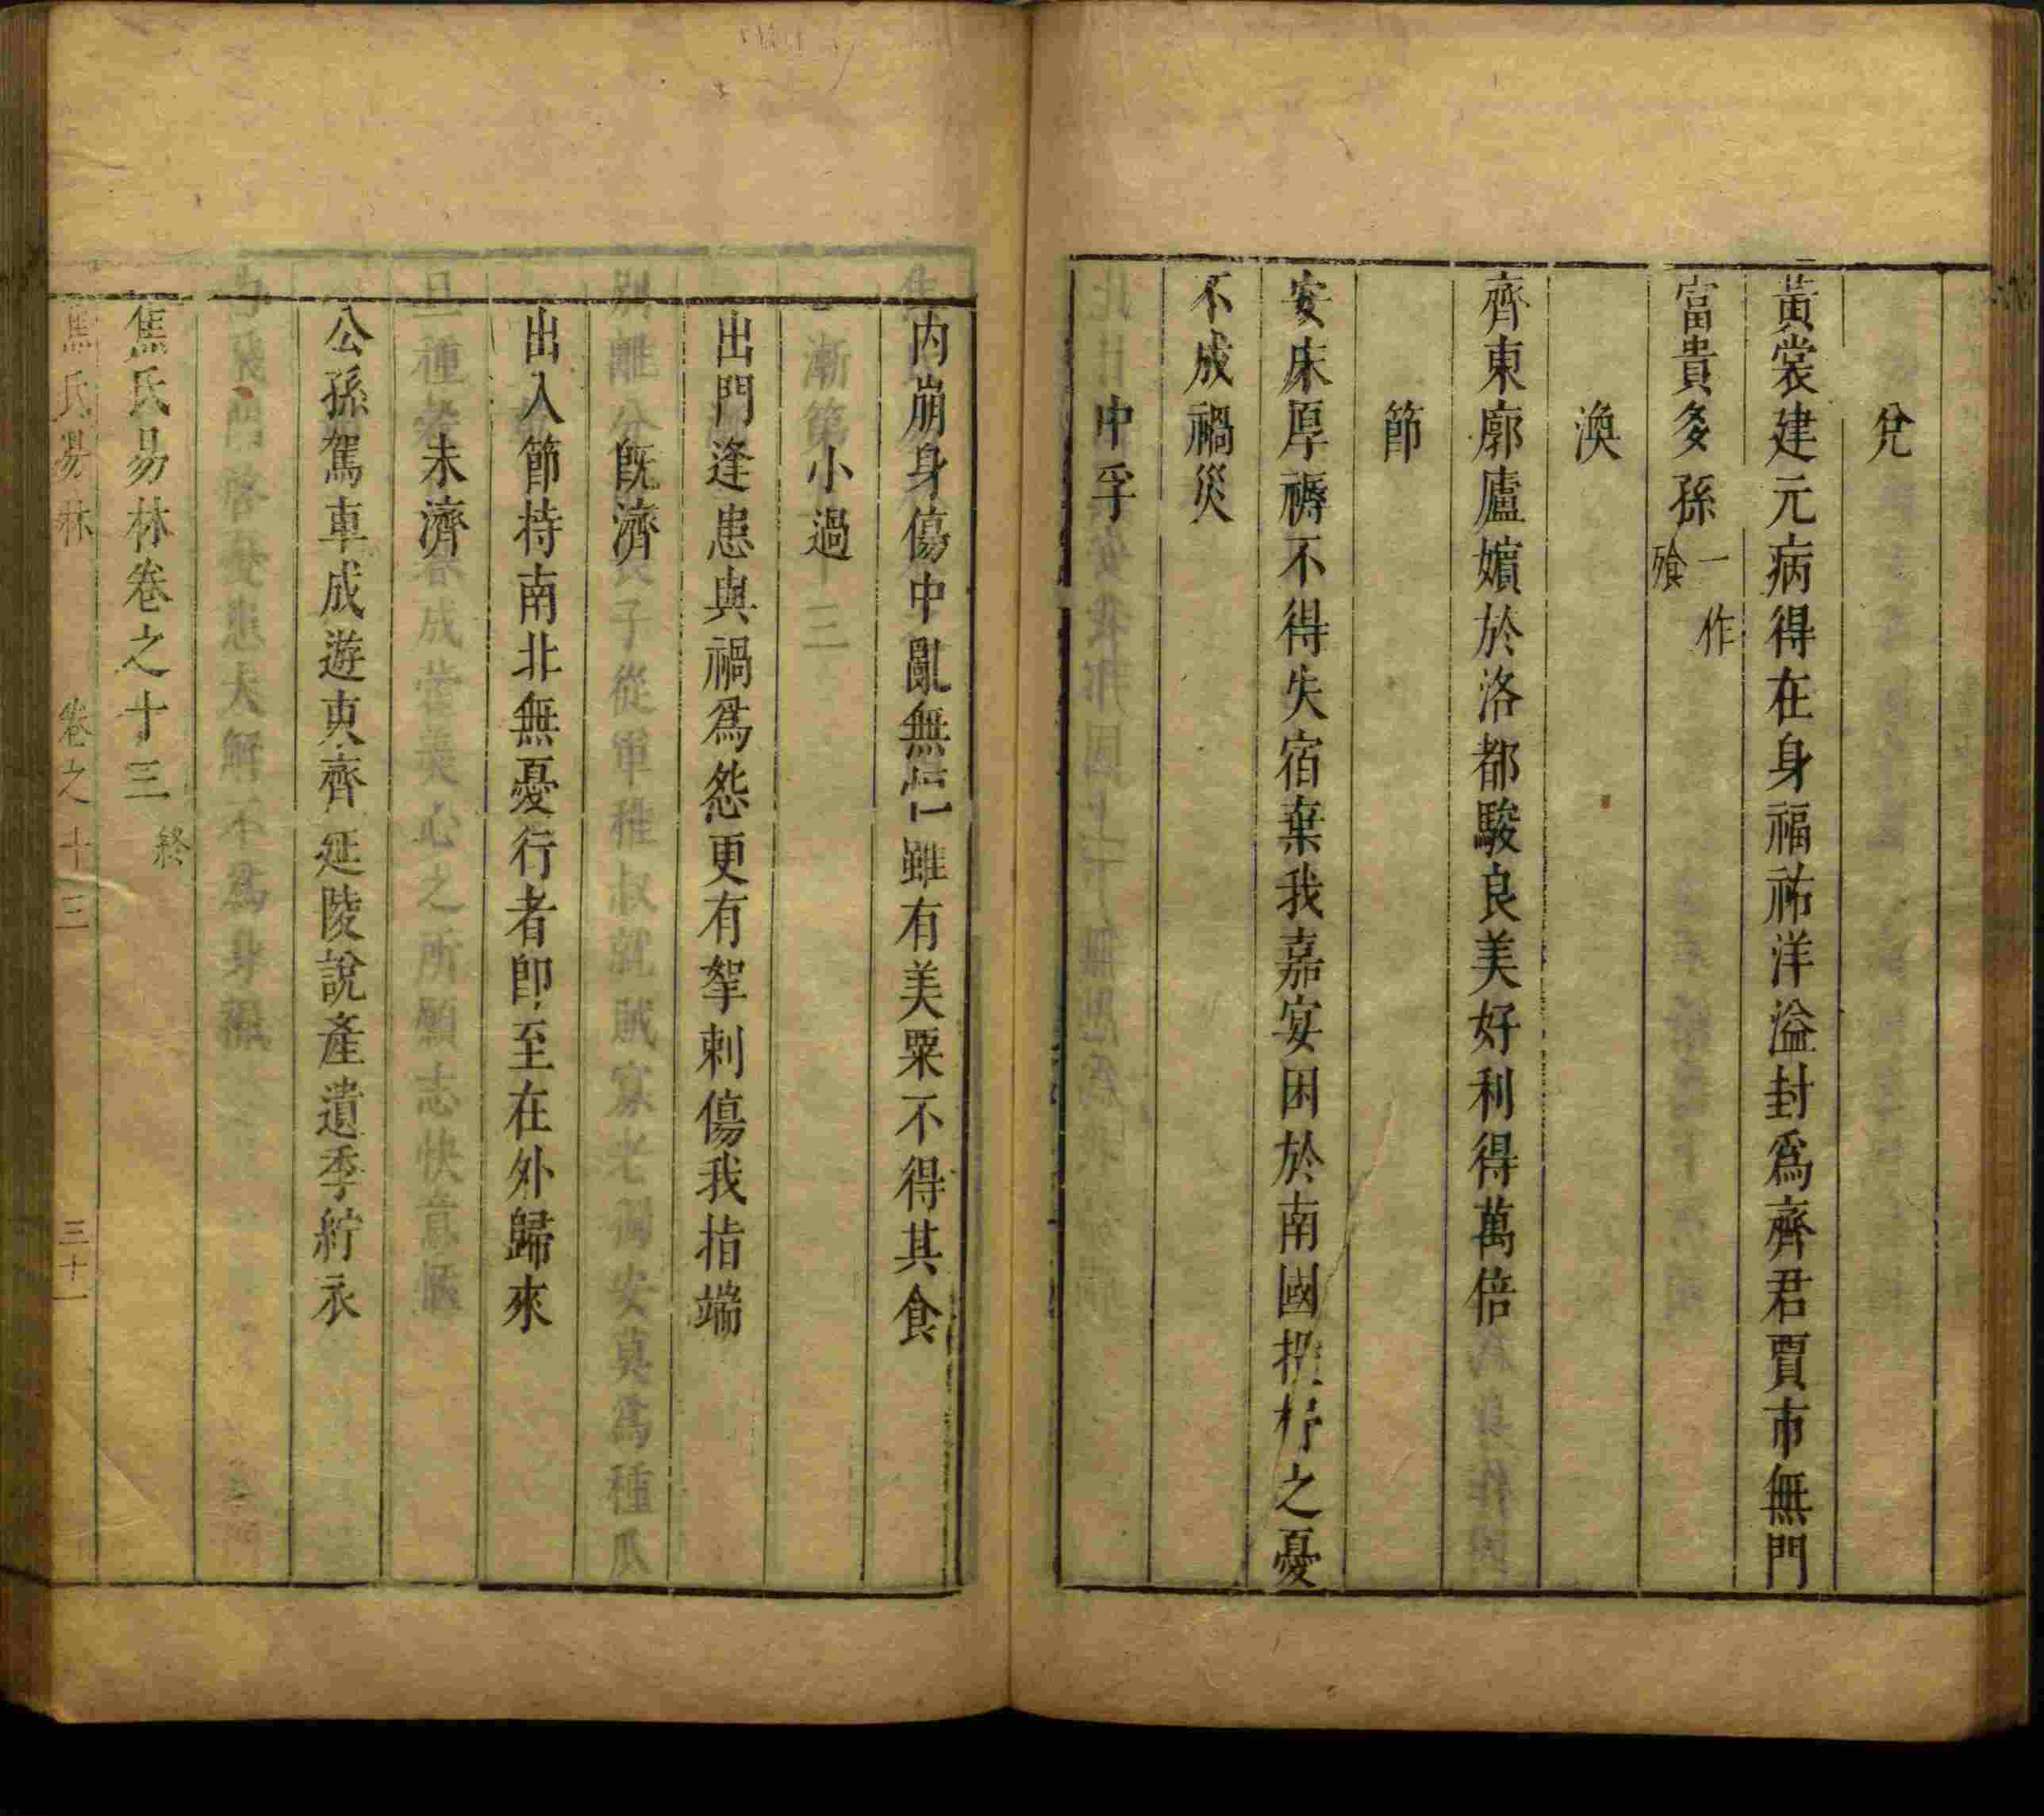 兌
黃裳建元病得在身福祐洋溢封爲齊君賈市無門
富貴多孫一作飱
渙
齊東廓廬嬪於洛都駿良美好利得萬倍
節
安床厚褥不得失宿棄我嘉宴困於南國投杼之憂
不成禍災
中孚
內崩身傷中亂無恒雖有美粟不得其食
小過
出門逢患與禍爲怨更有拏刺傷我指端
既濟
出入節持南北無憂行者卽至在外歸來
未濟
公孫駕車成遊東齊延陵說產遺季紵衣
焦氏易林卷之十三 終
焦氏易林 卷之十三 三十一